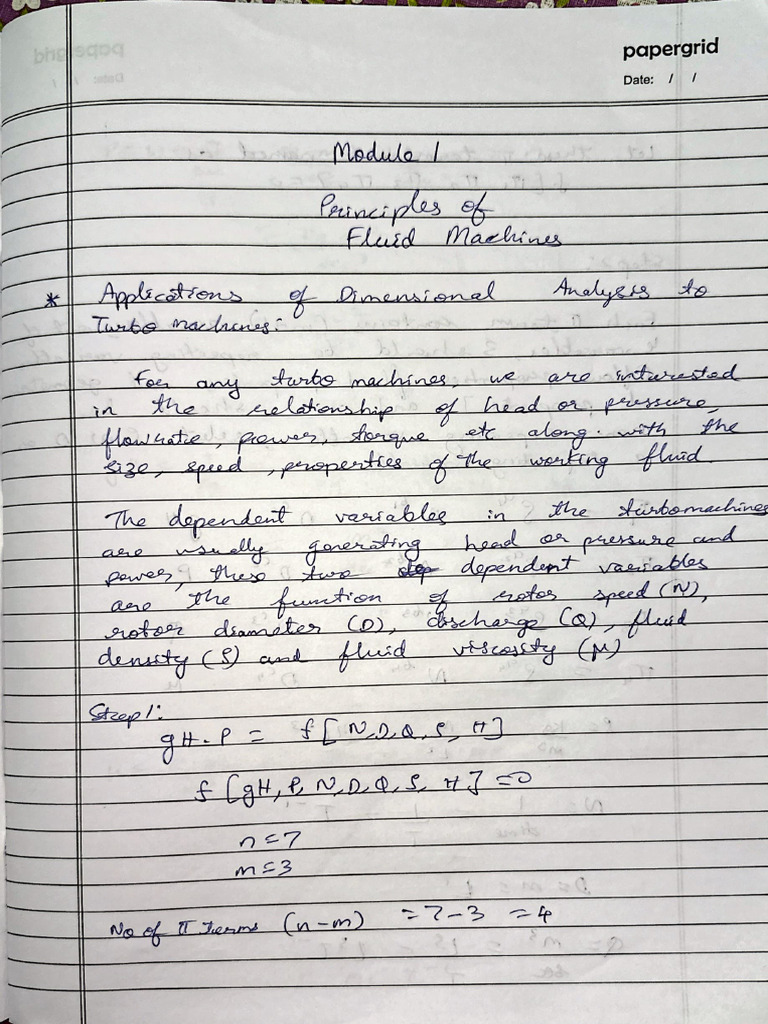 papergrid
Date: / /
Module 1
Principles of
Fluid Machines
* Applications of Dimensional Analysis to
Turbo machines:
For any turbo machines, we are interested
in the relationship of head or pressure,
flowrate, power, torque etc along with the
size, speed, properties of the working fluid.
The dependent variables in the turbomachines
are usually generating head or pressure and
power, these two dependent variables
are the function of rotor speed (N),
rotor diameter (D), discharge (Q), fluid
density (ρ) and fluid viscosity (μ)
Step 1:
gH. P = f [N, D, Q, ρ, μ]
f [gH, P, N, D, Q, ρ, μ] = 0
n = 7
m = 3
No of π terms (n-m) = 7-3 = 4